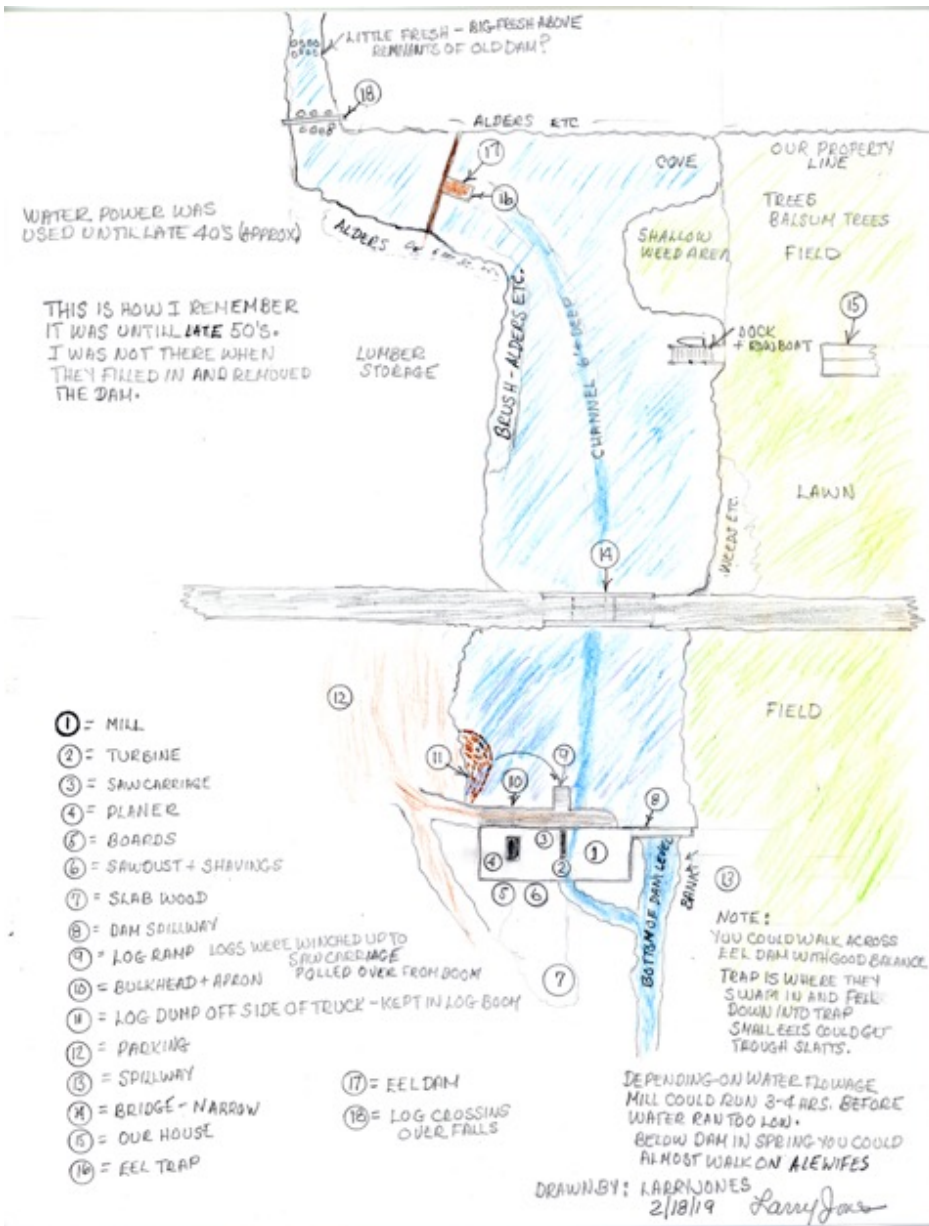 LITTLE FRESH - BIG FRESH ABOVE
REMNANTS OF OLD DAM?
18
ALDERS ETC
17
16
COVE
OUR PROPERTY
LINE
TREES
BALSUM TREES
FIELD
WATER POWER WAS
USED UNTIL LATE 40'S (APPROX)
ALDERS
SHALLOW
WEED AREA
THIS IS HOW I REMEMBER
IT WAS UNTILL LATE 50'S.
I WAS NOT THERE WHEN
THEY FILLED IN AND REMOVED
THE DAM.
LUMBER
STORAGE
BRUSH - ALDERS ETC.
CHANNEL 6' DEEP
DOCK
+ ROWBOAT
15
LAWN
WEEDS ETC.
14
12
FIELD
11
10
9
8
4
3
2
1
5
6
7
BOTTOM OF DAM LEVEL
13
1 = MILL
2 = TURBINE
3 = SAWCARRIAGE
4 = PLANER
5 = BOARDS
6 = SAWDUST + SHAVINGS
7 = SLAB WOOD
8 = DAM SPILLWAY
9 = LOG RAMP LOGS WERE WINCHED UP TO
SAWCARRIAGE
POLLED OVER FROM BOOM
10 = BULKHEAD + APRON
11 = LOG DUMP OFF SIDE OF TRUCK - KEPT IN LOG BOOM
12 = PARKING
13 = SPILLWAY
14 = BRIDGE - NARROW
15 = OUR HOUSE
16 = EEL TRAP
17 = EEL DAM
18 = LOG CROSSING
OVER FALLS
NOTE:
YOU COULD WALK ACROSS
EEL DAM WITH GOOD BALANCE
TRAP IS WHERE THEY
SWAM IN AND FELL
DOWN INTO TRAP
SMALL EELS COULD GET
TROUGH SLATTS.
DEPENDING ON WATER FLOWAGE
MILL COULD RUN 3-4 HRS. BEFORE
WATER RAN TOO LOW.
BELOW DAM IN SPRING YOU COULD
ALMOST WALK ON ALEWIFES
DRAWN BY: LARRY JONES
2/18/19 Larry Jones